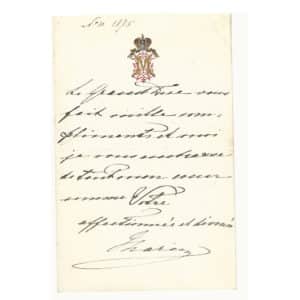 Nov 1875
Le Grand Duc vous
fait mille com-
pliments et moi
je vous embrasse
de tout mon cœur
Votre
affectionnée et dévouée